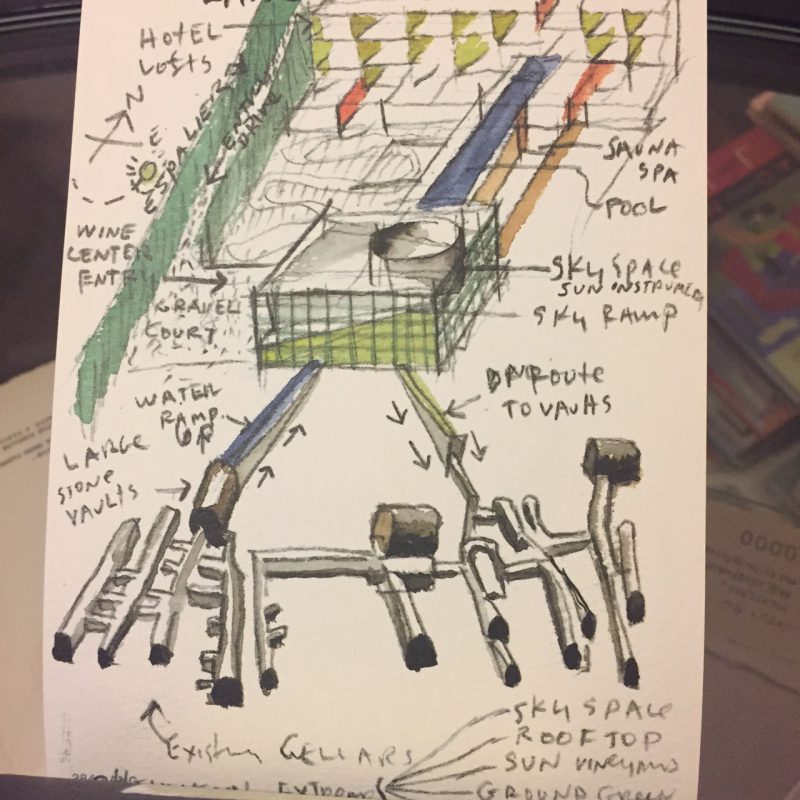 HOTEL
LOFTS
N
E
ESPALIERED
ENTRY
DRIVE
SAUNA
SPA
POOL
WINE
CENTER
ENTRY
GRAVEL
COURT
SKY SPACE
SUN INSTRUMENT
SKY RAMP
WATER
RAMP
UP
DN ROUTE
TO VAULTS
LARGE
STONE
VAULTS
EXISTING CELLARS
SKY SPACE
ROOFTOP
SUN VINEYARD
GROUND